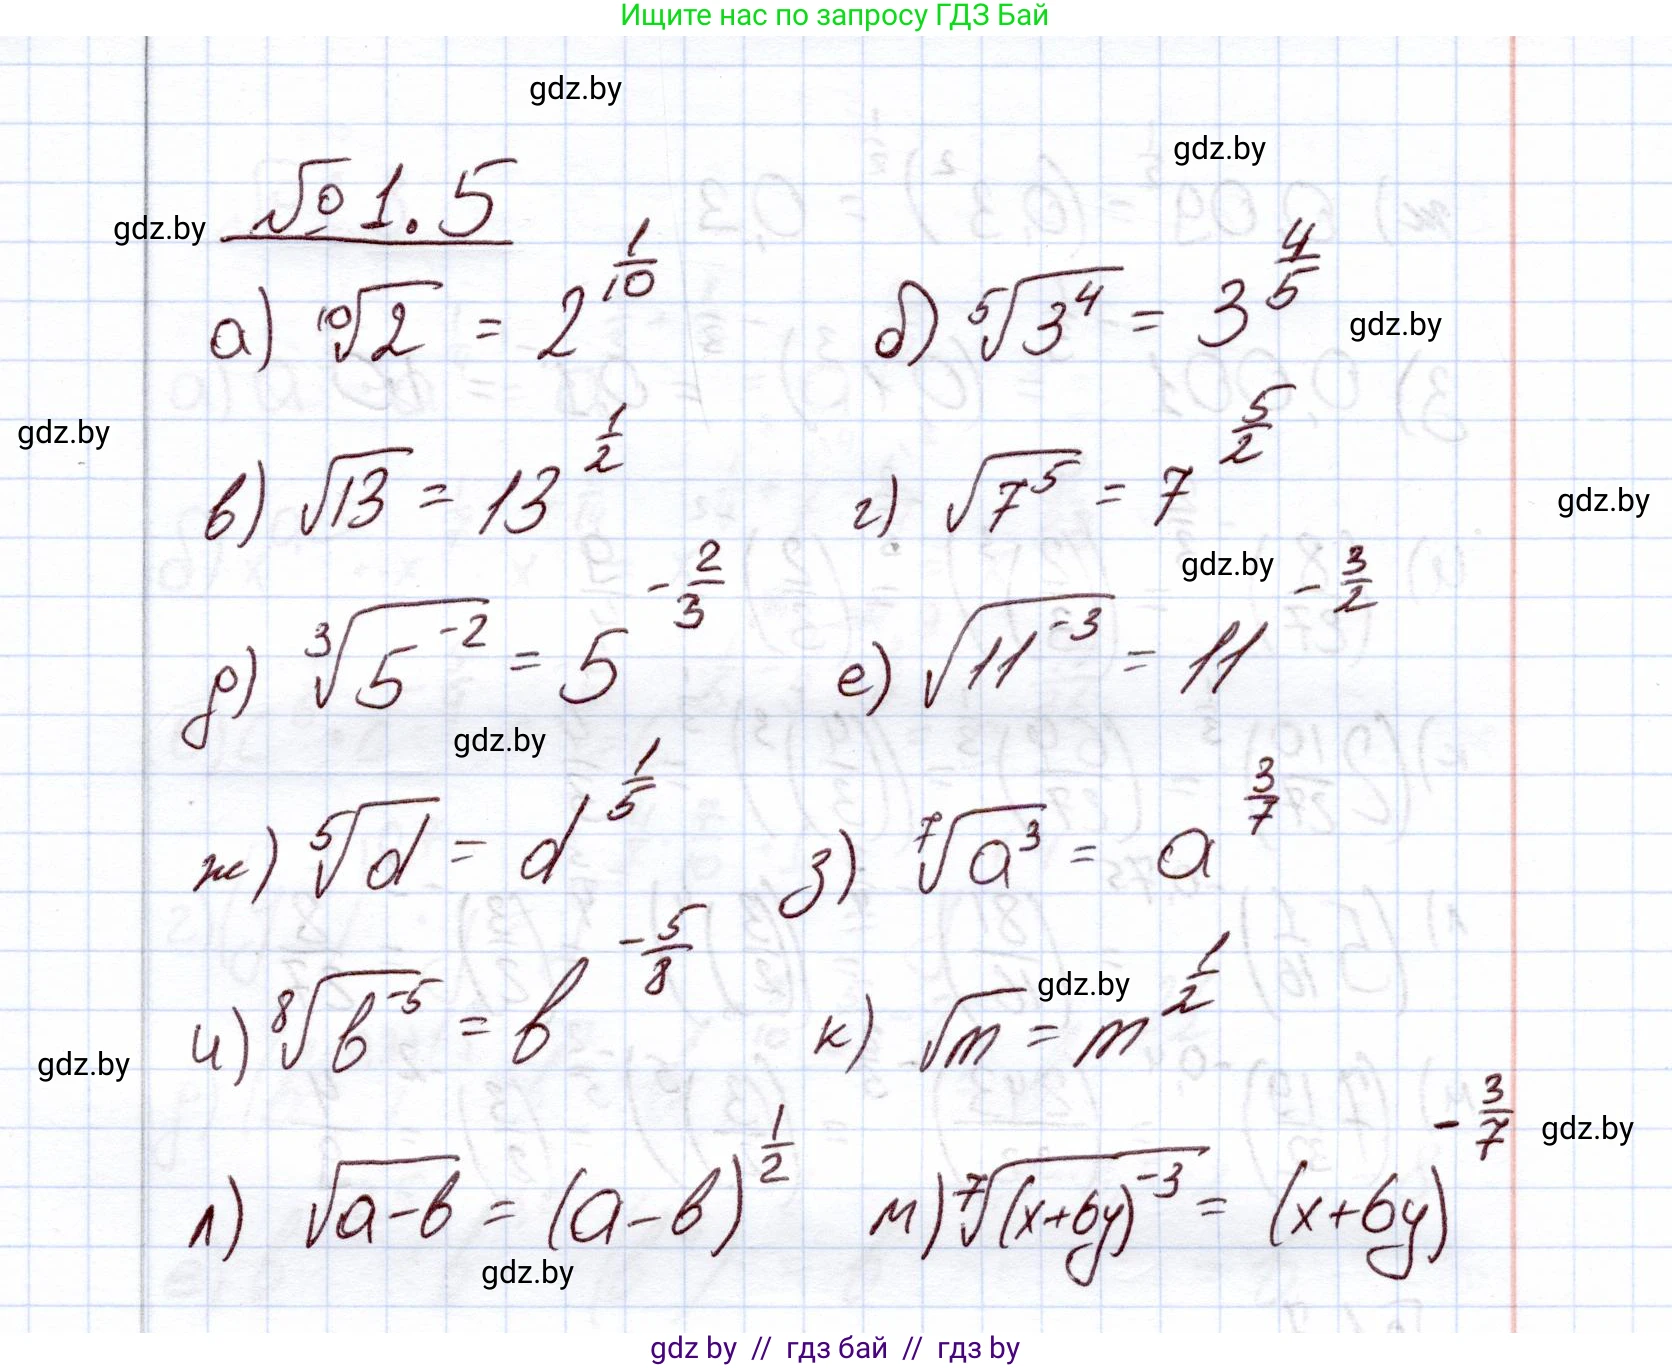 Ищите нас по запросу ГДЗ Бай
gdz.by
gdz.by
№ 1.5
gdz.by
а) ¹⁰√2 = 2^(1/10) б) ⁵√(3⁴) = 3^(4/5)
gdz.by
gdz.by
в) √13 = 13^(1/2) г) √(7⁵) = 7^(5/2)
gdz.by
gdz.by
д) ³√(5⁻²) = 5^(-2/3) е) √(11⁻³) = 11^(-3/2)
gdz.by
ж) ⁵√d = d^(1/5) з) ⁷√(a³) = a^(3/7)
gdz.by
и) ⁸√(b⁻⁵) = b^(-5/8) к) √m = m^(1/2)
gdz.by
gdz.by
л) √(a-b) = (a-b)^(1/2) м) ⁷√((x+6y)⁻³) = (x+6y)^(-3/7)
gdz.by
gdz by // гдз бай // гдз by